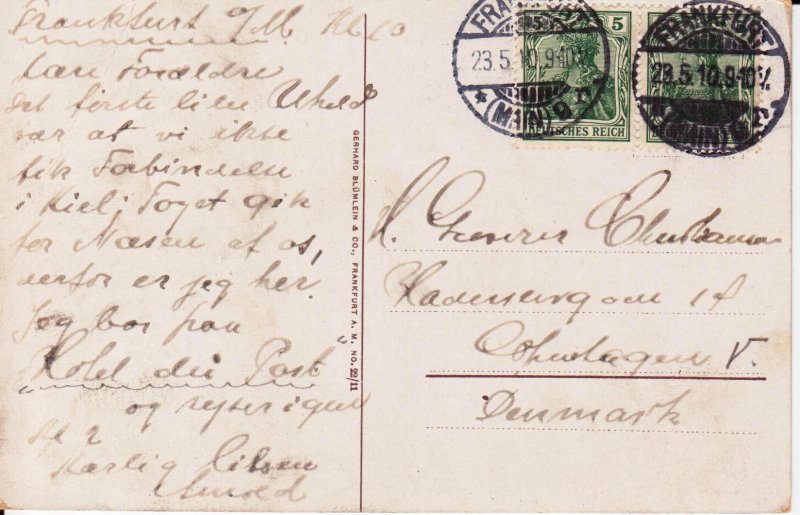 Frankfurt a/M. Kl 10
kære Forældre
det første lille Uheld
var at vi ikke
fik Forbindelse
i Kiel; Toget gik
for Næsen af os,
derfor er jeg her
Jeg bor paa
"Hotel die Post"
og rejser igen
Kl 2
Kærlig Hilsen
Arnold
GERHARD BLÜMLEIN & CO., FRANKFURT A. M. NO. 22/11
FRANKFURT
23.5.10.9-10V.
(MAIN) 9 n
5
DEUTSCHES REICH
FRANKFURT
23.5.10.9-10V.
Christiansen
Haderslevgade 17
Copenhagen V.
Denmark